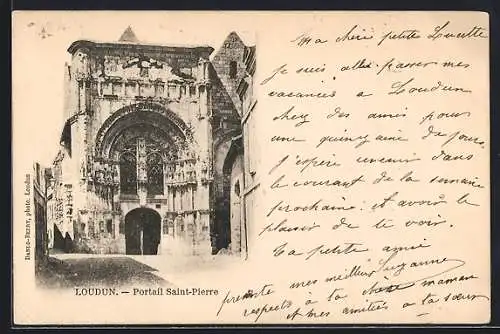 Ma chère petite Lucette
je suis allée passer mes
vacances à Loudun
chez des amis pour
une quinzaine de jours.
j'espère revenir dans
le courant de la semaine
prochaine. et avoir le
plaisir de te voir.
Ta petite amie
Suzanne
présente mes meilleurs
respects à ta chère maman
et mes amitiés à ta sœur
DANGE-BERRY, phot. Loudun
LOUDUN. — Portail Saint-Pierre